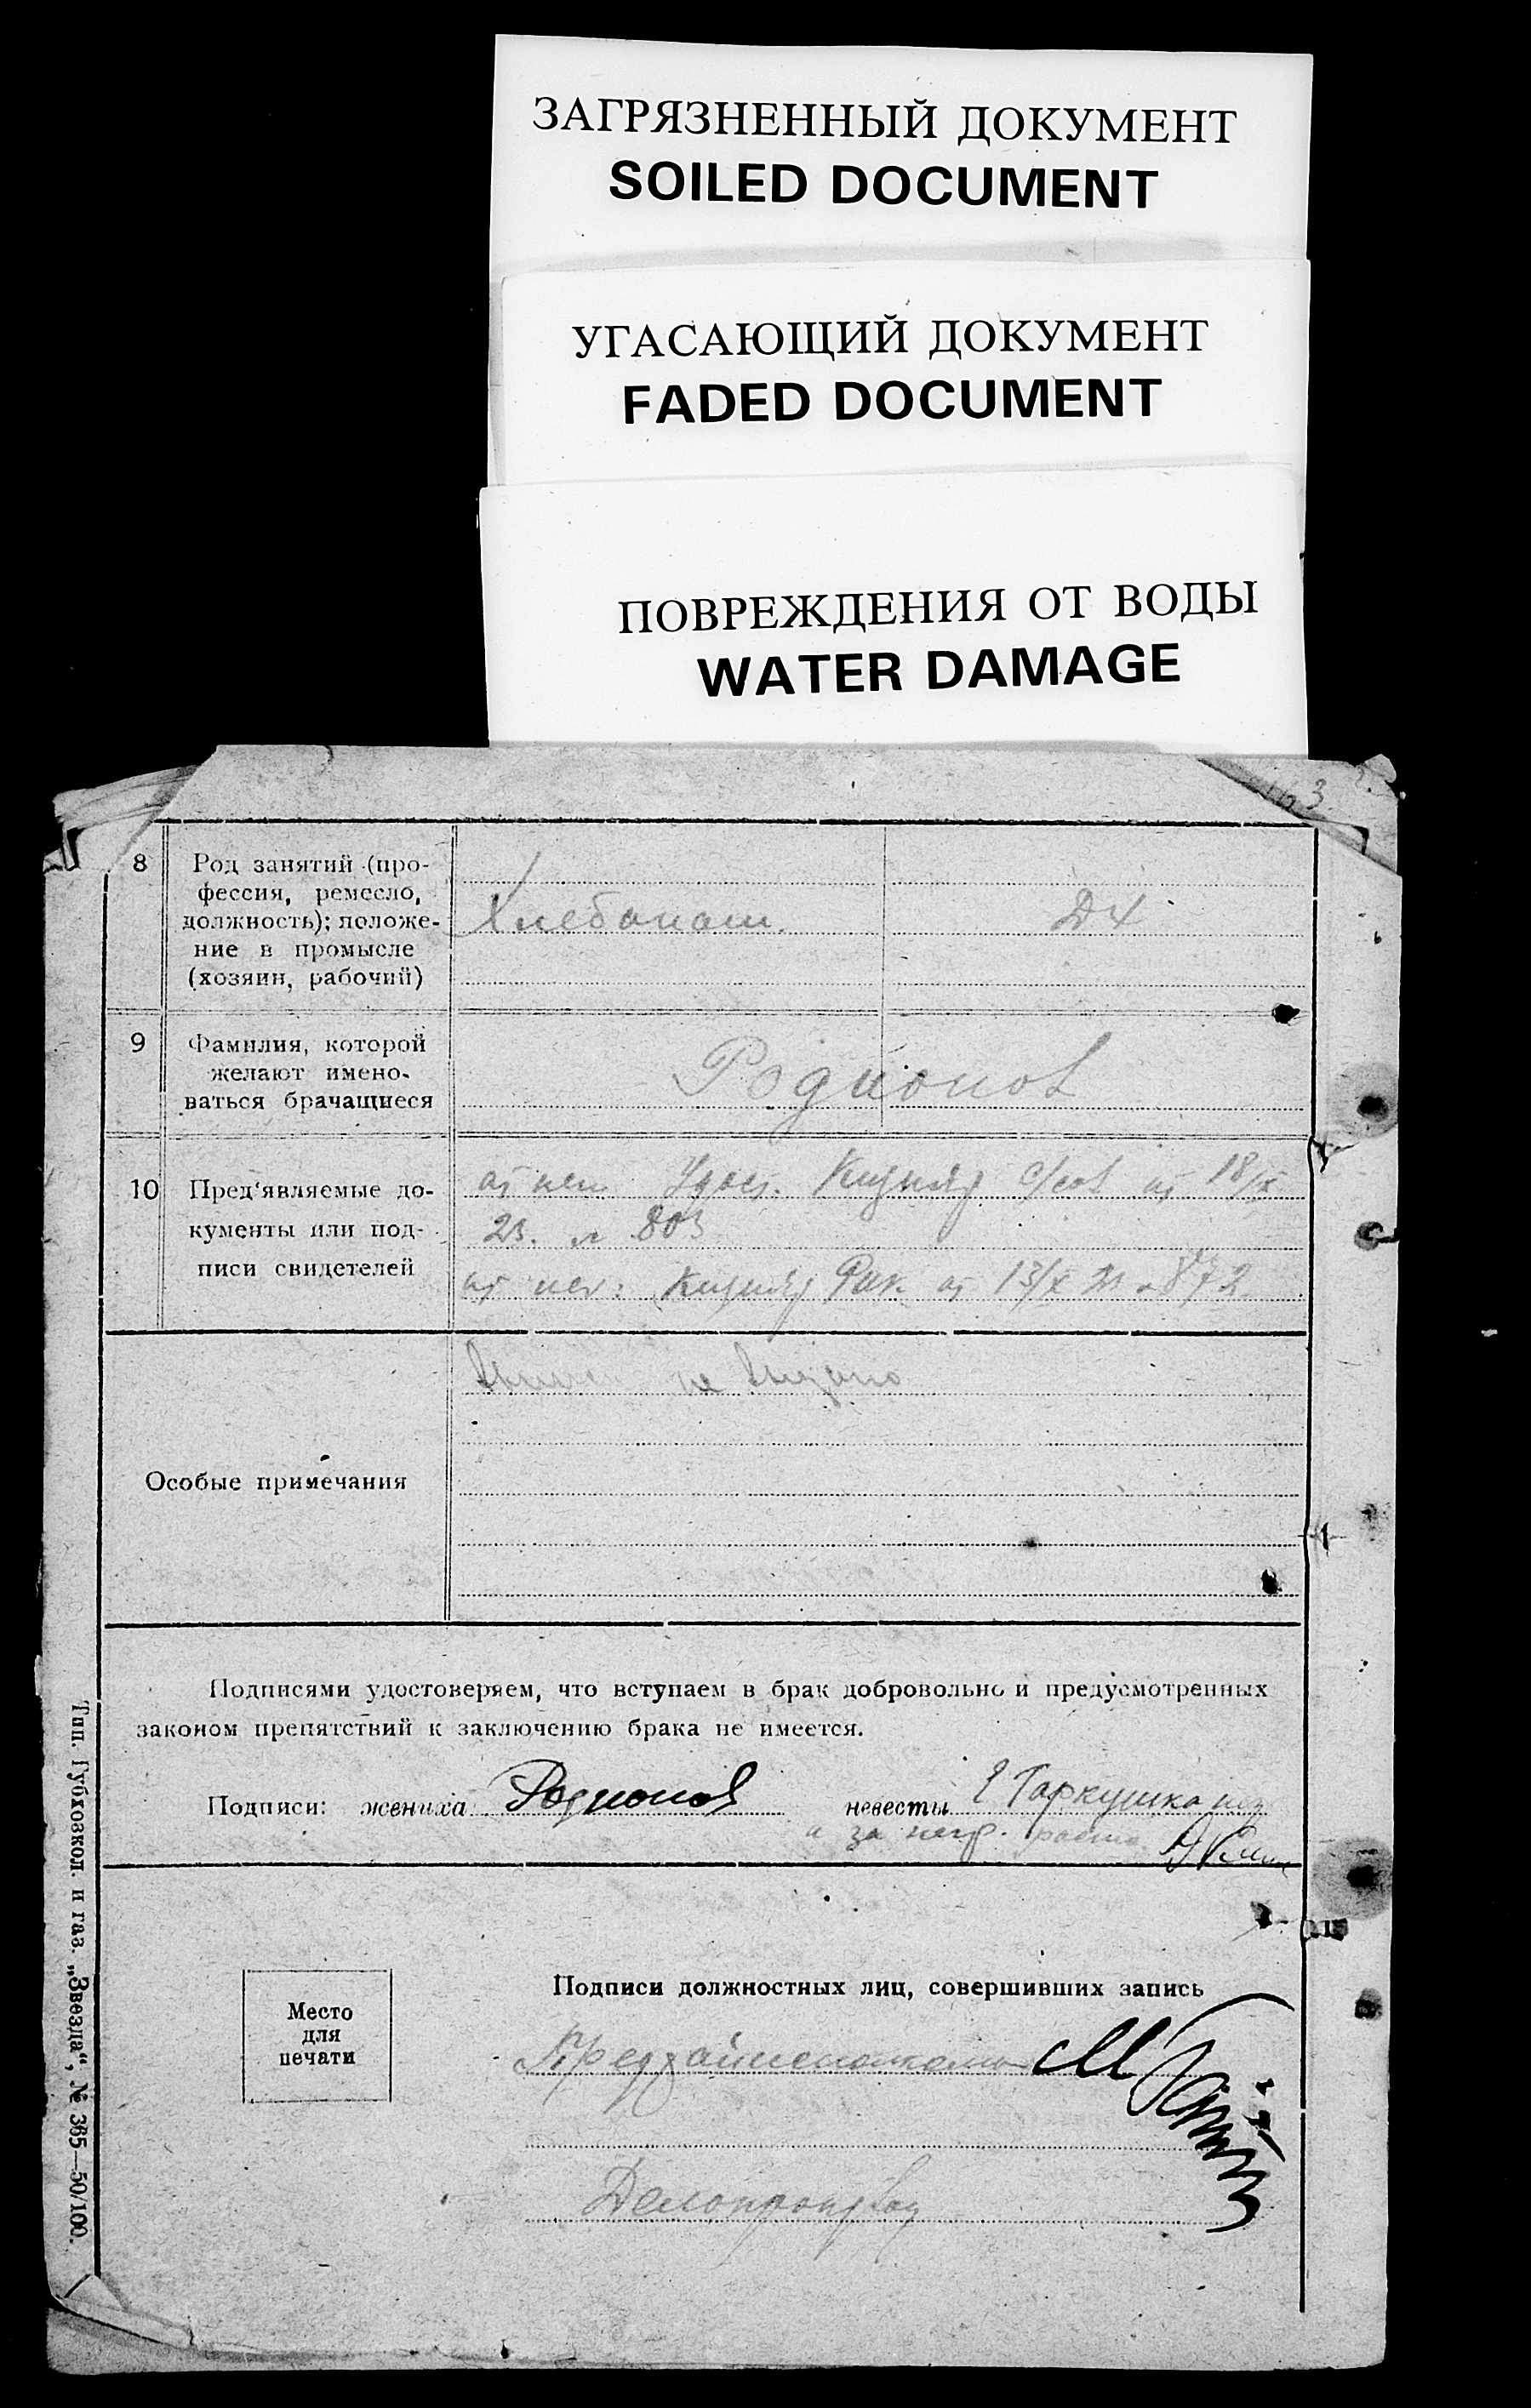 ЗАГРЯЗНЕННЫЙ ДОКУМЕНТ
SOILED DOCUMENT
УГАСАЮЩИЙ ДОКУМЕНТ
FADED DOCUMENT
ПОВРЕЖДЕНИЯ ОТ ВОДЫ
WATER DAMAGE
163
8
Род занятий (про-
фессия, ремесло,
должность); положе-
ние в промысле
(хозяин, рабочий)
Хлебопаш. ДХ
9
Фамилия, которой
желают имено-
ваться брачащиеся
Родионов
10
Пред'являемые до-
кументы или под-
писи свидетелей
от 18/X
23. № 803
Рик от 13/X 872
Особые примечания
не выдано
Подписями удостоверяем, что вступаем в брак добровольно и предусмотренных
законом препятствий к заключению брака не имеется.
Подписи: жениха Родионов невесты Таркушка
а за негр.
Место
для
печати
Подписи должностных лиц, совершивших запись
Делопроизвод
Тип. Губховкол. и газ. „Звезда“, № 365—50/100.